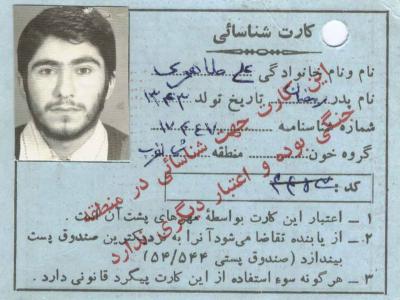 کارت شناسائی
نام ونام خانوادگی علی طاهری
نام پدر رمضان تاریخ تولد ۱۳۴۳
شماره شناسنامه ۱۷۴۶۷
گروه خون منطقه
کد:
این کارت جهت شناسائی در منطقه
جنگی بوده و اعتبار دیگری ندارد
۱ ـ اعتبار این کارت بواسطه مهرهای پشت آن است .
۲ ـ از یابنده تقاضا می‌شود آنرا به نزدیکترین صندوق پست
بیندازد (صندوق پستی ۵۴/۵۴۴)
۳ ـ هرگونه سوء استفاده از این کارت پیگرد قانونی دارد .